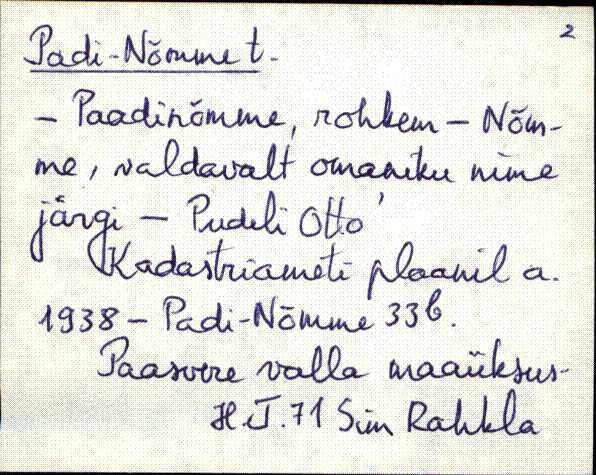 2
Padi-Nõmme t.
- Paadinõmme, rohkem - Nõm-
me, valdavalt omaniku nime
järgi - Pudeli Otto'
Kadastriameti plaanil a.
1938 - Padi-Nõmme 33b.
Paasvere valla maaüksus-
H.J. 71 Sim Rahkla